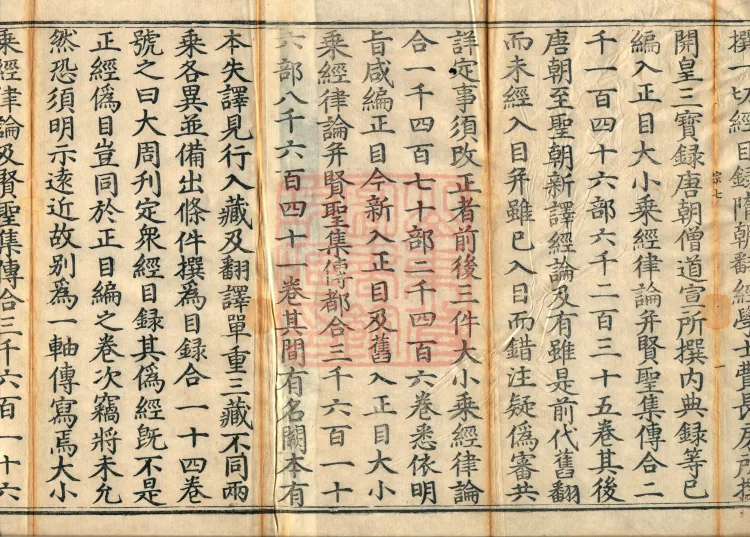 撰一切經目録隋朝翻經學士費長房所撰
開皇三寳録唐朝僧道宣所撰内典録等已
宗七
編入正目大小乘經律論并賢聖集傳合二
千一百四十六部六千二百三十五卷其後
唐朝至聖朝新譯經論及有雖是前代舊翻
而未經入目并雖已入目而錯注疑僞審共
詳定事須改正者前後三件大小乘經律論
合一千四百七十部二千四百六卷悉依明
旨咸編正目今新入正目及舊入正目大小
乘經律論并賢聖集傳都合三千六百一十
六部八千六百四十一卷其間有名闕本有
本失譯見行入藏及翻譯單重三藏不同兩
乘各異並備出條件撰爲目録合一十四卷
號之曰大周刊定衆經目録其僞經旣不是
正經僞目豈同於正目編之卷次竊將未允
然恐須明示遠近故别爲一軸傳寫焉大小
乘經律論及賢聖集傳合三千六百一十六